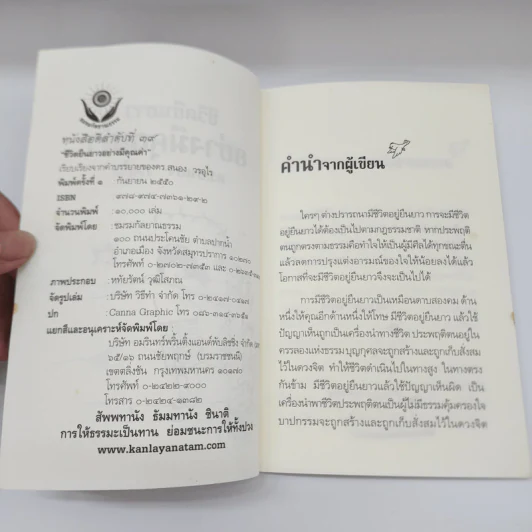 หนังสือดีลำดับที่ ๓๙
"ชีวิตยืนยาวอย่างมีคุณค่า"
เรียบเรียงจากคำบรรยายของดร.สนอง วรอุไร
พิมพ์ครั้งที่ ๑ กันยายน ๒๕๕๐
ISBN
จำนวนพิมพ์ : ๑๐,๐๐๐ เล่ม
จัดพิมพ์โดย : ชมรมกัลยาณธรรม
๑๐๐ ถนนประโคนชัย ตำบลปากน้ำ
อำเภอเมือง จังหวัดสมุทรปราการ ๑๐๒๗๐
โทรศัพท์
ภาพประกอบ : หทัยรัตน์ วุฒิโสภณ
จัดรูปเล่ม : บริษัท วิธีทำ จำกัด โทร
ปก : Canna Graphic โทร
แยกสีและอนุเคราะห์จัดพิมพ์โดย
บริษัท อมรินทร์พริ้นติ้งแอนด์พับลิชชิ่ง จำกัด
๖๕/๑๖ ถนนชัยพฤกษ์ (บรมราชชนนี)
เขตตลิ่งชัน กรุงเทพมหานคร ๑๐๑๗๐
โทรศัพท์ ๐-๒๔๒๒-๙๐๐๐
โทรสาร ๐-๒๔๒๔-๑๓๘๒
สัพพทานัง ธัมมทานัง ชินาติ
การให้ธรรมะเป็นทาน ย่อมชนะการให้ทั้งปวง
www.kanlayanatam.com
คำนำจากผู้เขียน
ใครๆ ต่างปรารถนามีชีวิตอยู่ยืนยาว การจะมีชีวิต
อยู่ยืนยาวได้ต้องเป็นไปตามกฎธรรมชาติ หากประพฤติ
ตนถูกตรงตามธรรมคือทำใจให้เป็นผู้มีศีลได้ทุกขณะตื่น
แล้วลดการปรุงแต่งอารมณ์ของใจให้น้อยลงได้แล้ว
โอกาสที่จะมีชีวิตอยู่ยืนยาวจึงจะเป็นไปได้
การมีชีวิตอยู่ยืนยาวเป็นเหมือนดาบสองคม ด้าน
หนึ่งให้คุณอีกด้านหนึ่งให้โทษ มีชีวิตอยู่ยืนยาว แล้วใช้
ปัญญาเห็นถูกเป็นเครื่องนำทางชีวิต ประพฤติตนอยู่ใน
ครรลองแห่งธรรม บุญกุศลจะถูกสร้างและถูกเก็บสั่งสม
ไว้ในดวงจิต ทำให้ชีวิตดำเนินไปในทางสูง ในทางตรง
กันข้าม มีชีวิตอยู่ยืนยาวแล้วใช้ปัญญาเห็นผิด เป็น
เครื่องนำพาชีวิตประพฤติตนเป็นผู้ไม่มีธรรมคุ้มครองใจ
บาปกรรมจะถูกสร้างและถูกเก็บสั่งสมไว้ในดวงจิต